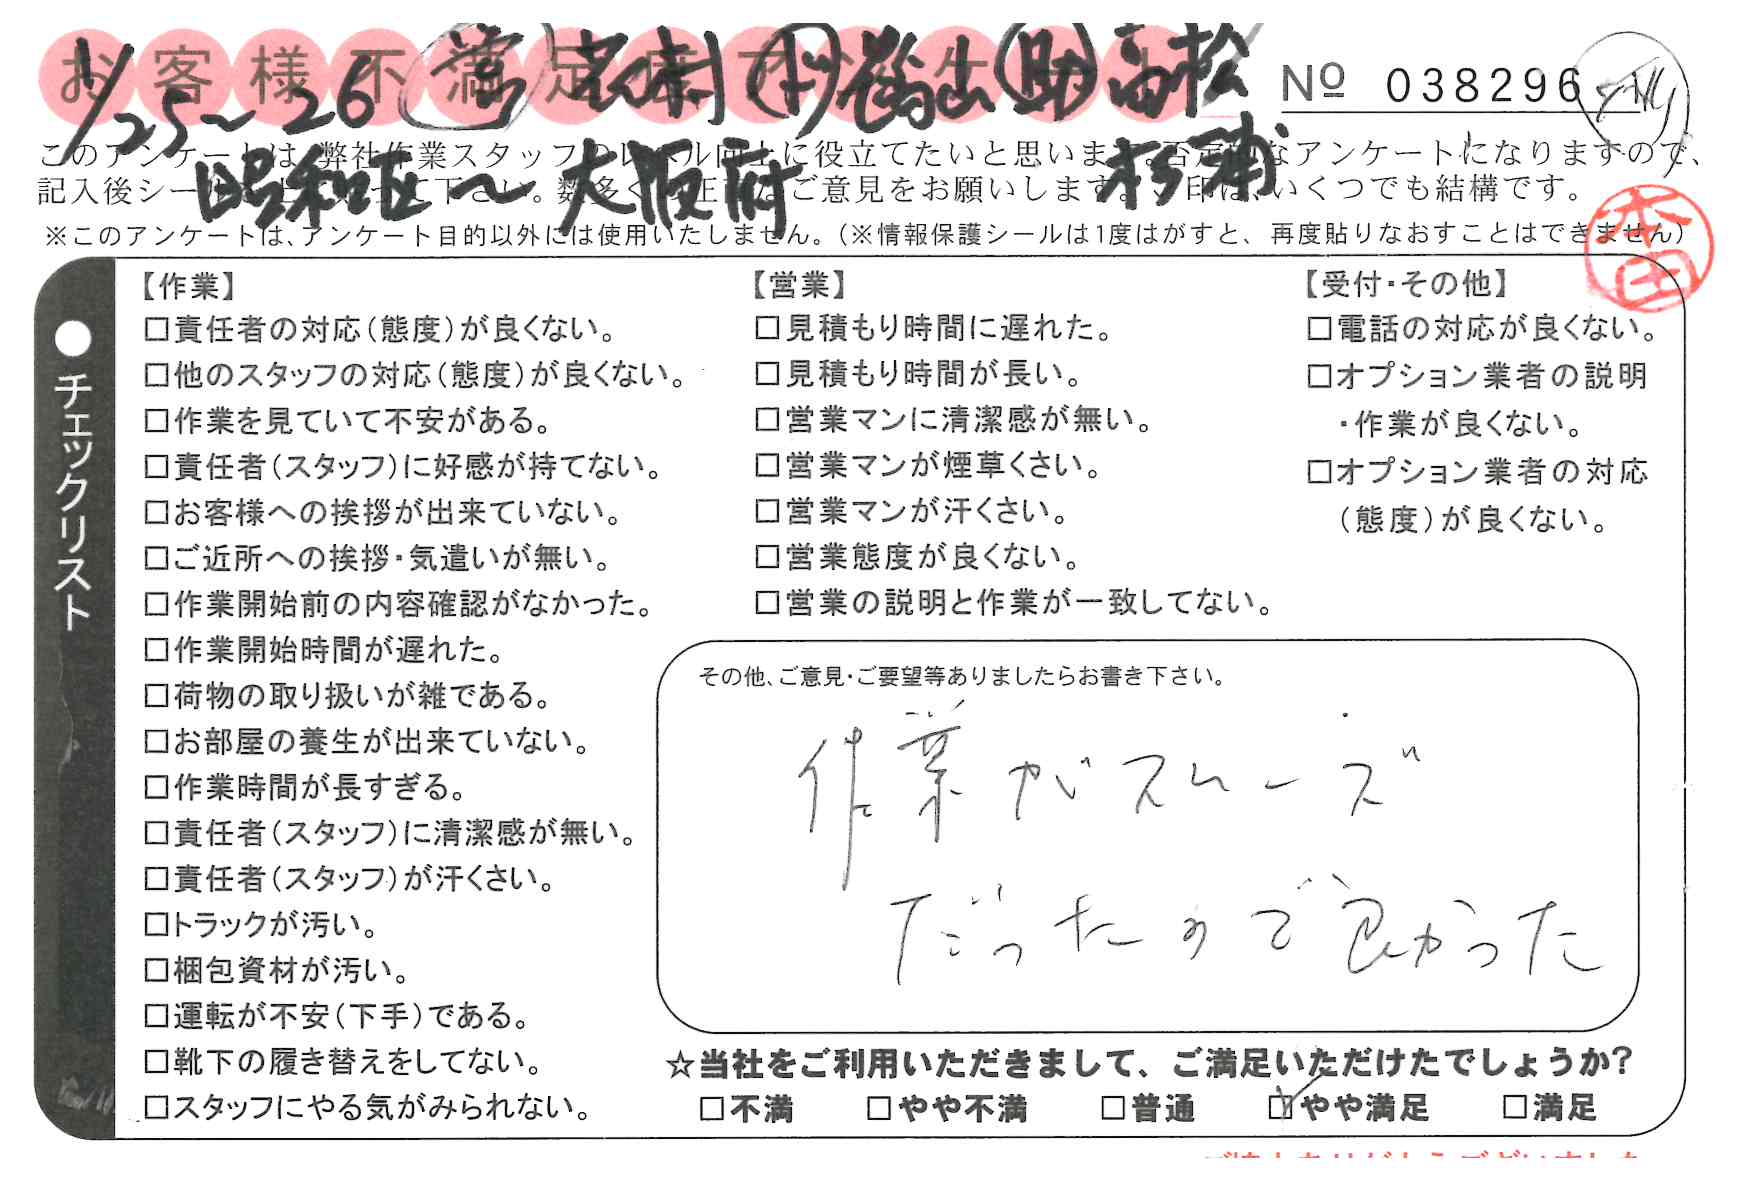 お客様不満足度アンケート
1/25～26 営 志村 (ド)畠山 (助)高松
No 038296
杉浦
昭和区～大阪府
このアンケートは、弊社作業スタッフのレベル向上に役立てたいと思います。否定的なアンケートになりますので、
記入後シールを上に貼って下さい。数多くの正直なご意見をお願いします。レ印は、いくつでも結構です。
※このアンケートは、アンケート目的以外には使用いたしません。(※情報保護シールは1度はがすと、再度貼りなおすことはできません)
本田
●チェックリスト
【作業】
□責任者の対応(態度)が良くない。
□他のスタッフの対応(態度)が良くない。
□作業を見ていて不安がある。
□責任者(スタッフ)に好感が持てない。
□お客様への挨拶が出来ていない。
□ご近所への挨拶・気遣いが無い。
□作業開始前の内容確認がなかった。
□作業開始時間が遅れた。
□荷物の取り扱いが雑である。
□お部屋の養生が出来ていない。
□作業時間が長すぎる。
□責任者(スタッフ)に清潔感が無い。
□責任者(スタッフ)が汗くさい。
□トラックが汚い。
□梱包資材が汚い。
□運転が不安(下手)である。
□靴下の履き替えをしてない。
□スタッフにやる気がみられない。
【営業】
□見積もり時間に遅れた。
□見積もり時間が長い。
□営業マンに清潔感が無い。
□営業マンが煙草くさい。
□営業マンが汗くさい。
□営業態度が良くない。
□営業の説明と作業が一致してない。
【受付・その他】
□電話の対応が良くない。
□オプション業者の説明
・作業が良くない。
□オプション業者の対応
(態度)が良くない。
その他、ご意見・ご要望等ありましたらお書き下さい。
作業がスムーズ
だったので良かった
☆当社をご利用いただきまして、ご満足いただけたでしょうか?
□不満 □やや不満 □普通 ☑やや満足 □満足